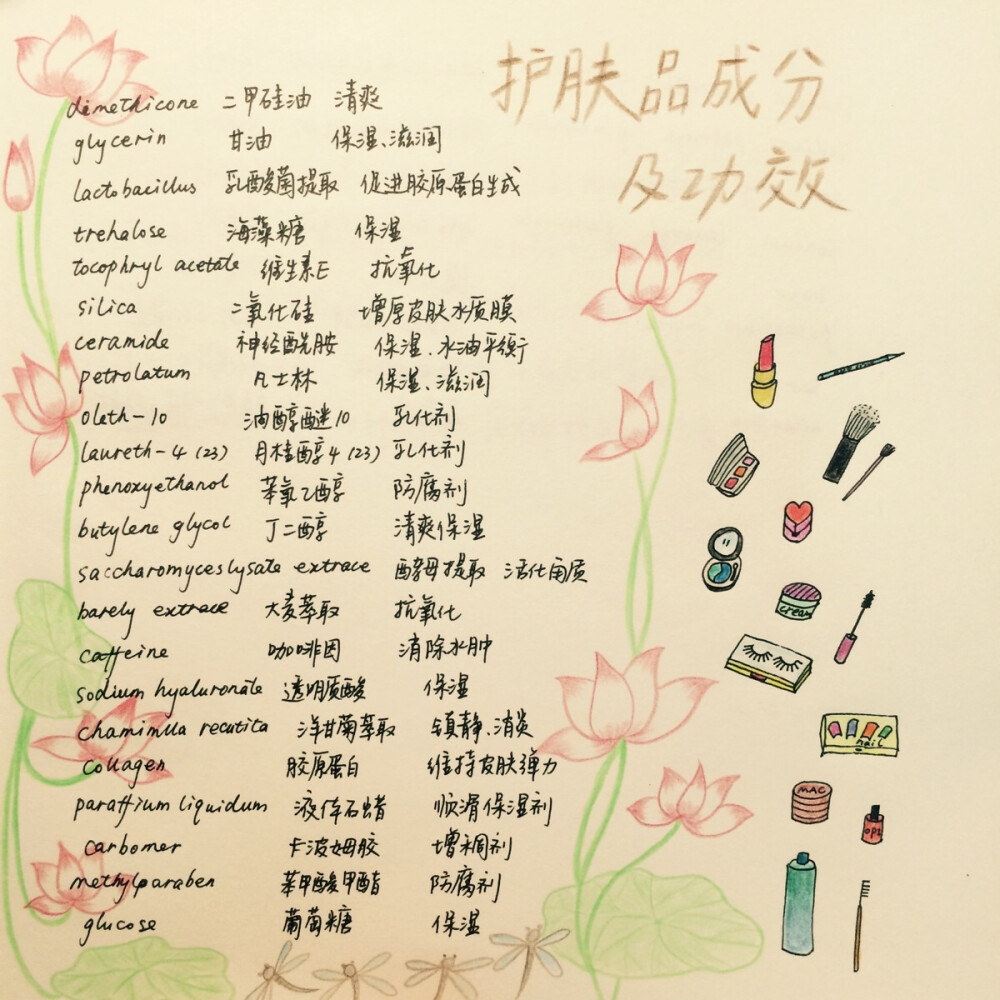 护肤品成分
及功效
dimethicone 二甲硅油 清爽
glycerin 甘油 保湿、滋润
lactobacillus 乳酸菌提取 促进胶原蛋白生成
trehalose 海藻糖 保湿
tocophryl acetate 维生素E 抗氧化
silica 二氧化硅 增厚皮肤水质膜
ceramide 神经酰胺 保湿、水油平衡
petrolatum 凡士林 保湿、滋润
oleth-10 油醇醚10 乳化剂
laureth-4 (23) 月桂醇4 (23) 乳化剂
phenoxyethanol 苯氧乙醇 防腐剂
butylene glycol 丁二醇 清爽保湿
saccharomyceslysate extrace 酵母提取 活化角质
barely extrace 大麦萃取 抗氧化
caffeine 咖啡因 消除水肿
sodium hyaluronate 透明质酸 保湿
chamimilla recutita 洋甘菊萃取 镇静、消炎
collagen 胶原蛋白 维持皮肤弹力
paraffium liquidum 液体石蜡 顺滑保湿剂
carbomer 卡波姆胶 增稠剂
methylparaben 苯甲酸甲酯 防腐剂
glucose 葡萄糖 保湿
cream
nail
MAC
OPI